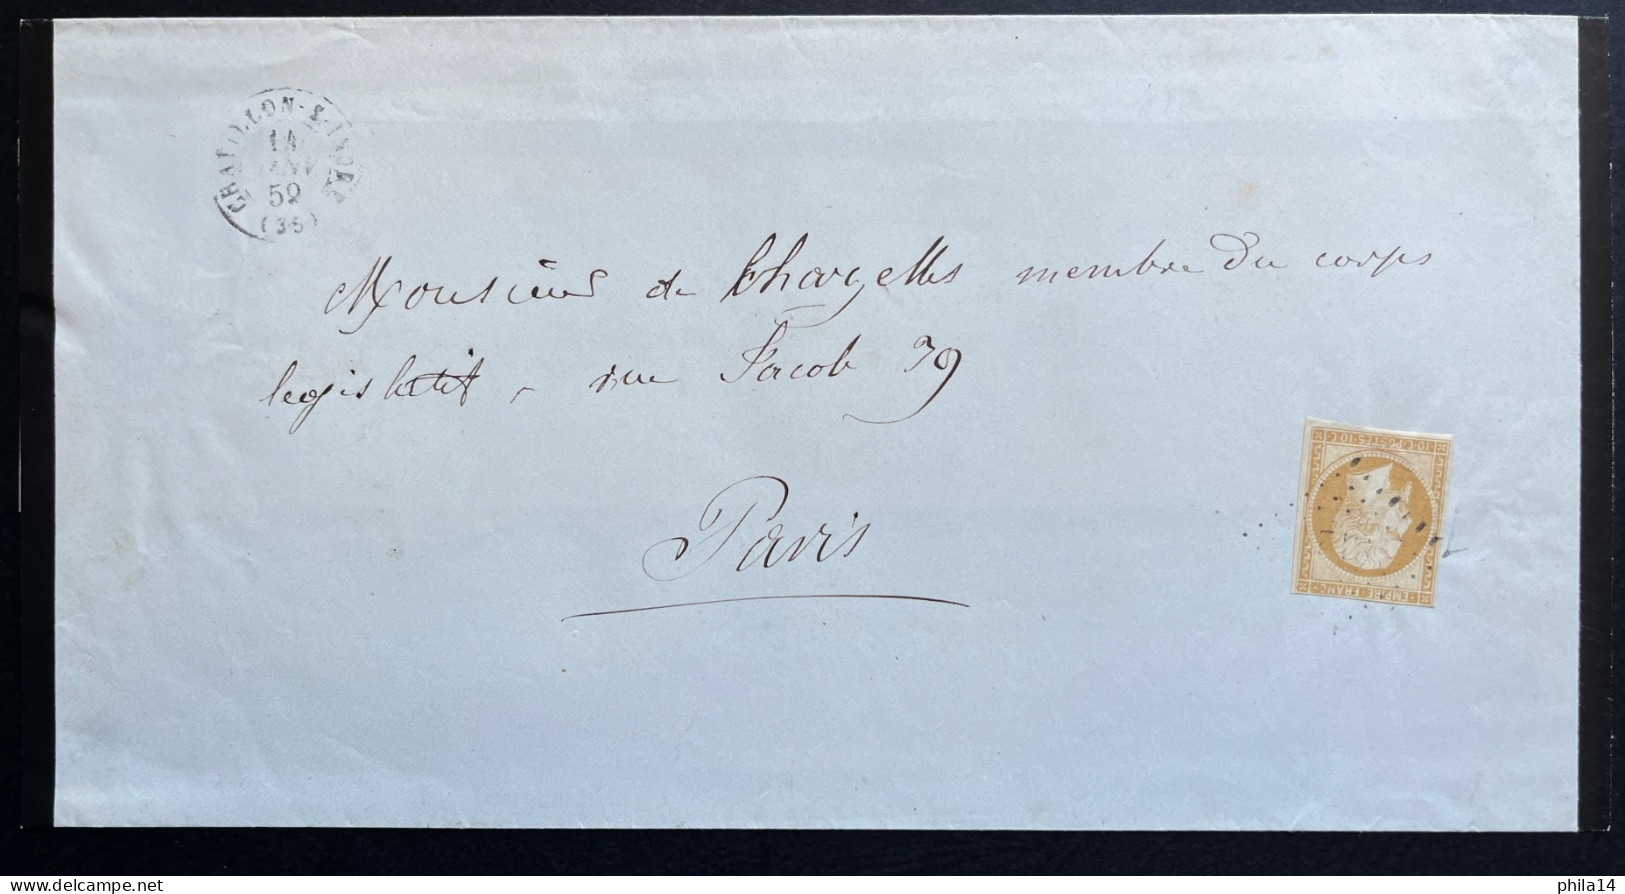 CHATILLON-S-INDRE
14
JANV
59
(35)
Monsieur de Chargelles membre du corps
legislatif, rue Jacob 39
Paris
10·C·POSTES·10·C
EMPIRE·FRANC·
phila14